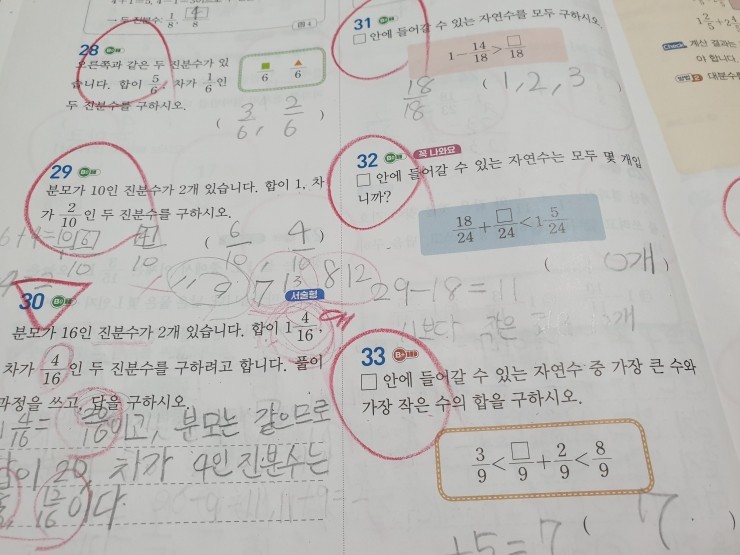 → 두 진분수: 1/8 4/8
28
오른쪽과 같은 두 진분수가 있
습니다. 합이 5/6, 차가 1/6인
두 진분수를 구하시오.
■/6 ▲/6
( 3/6, 2/6 )
29
분모가 10인 진분수가 2개 있습니다. 합이 1, 차
가 2/10인 두 진분수를 구하시오.
( 6/10, 4/10 )
30
서술형
분모가 16인 진분수가 2개 있습니다. 합이 1 4/16,
차가 4/16인 두 진분수를 구하려고 합니다. 풀이
과정을 쓰고, 답을 구하시오.
1 4/16 = 20/16이고, 분모는 같으므로
합이 20, 차가 4인 진분수는
12/16이다
31
□ 안에 들어갈 수 있는 자연수를 모두 구하시오.
1-14/18>□/18
18/18
( 1, 2, 3 )
32
꼭 나와요
□ 안에 들어갈 수 있는 자연수는 모두 몇 개입
니까?
18/24+□/24<1 5/24
( 개 )
29-18=11
작은
33
□ 안에 들어갈 수 있는 자연수 중 가장 큰 수와
가장 작은 수의 합을 구하시오.
3/9<□/9+2/9<8/9
+5=7
( 7 )
Check 계산 결과는
이 합니다.
대분수를